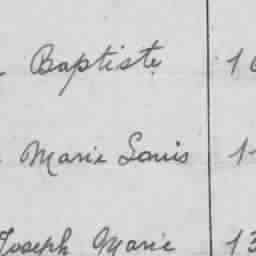 Baptiste 1
Marie Louis 1
Joseph Marie 13